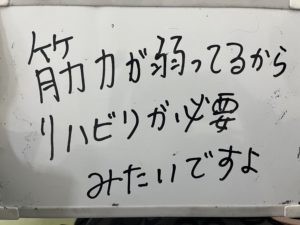 筋力が弱ってるから
リハビリが必要
みたいですよ